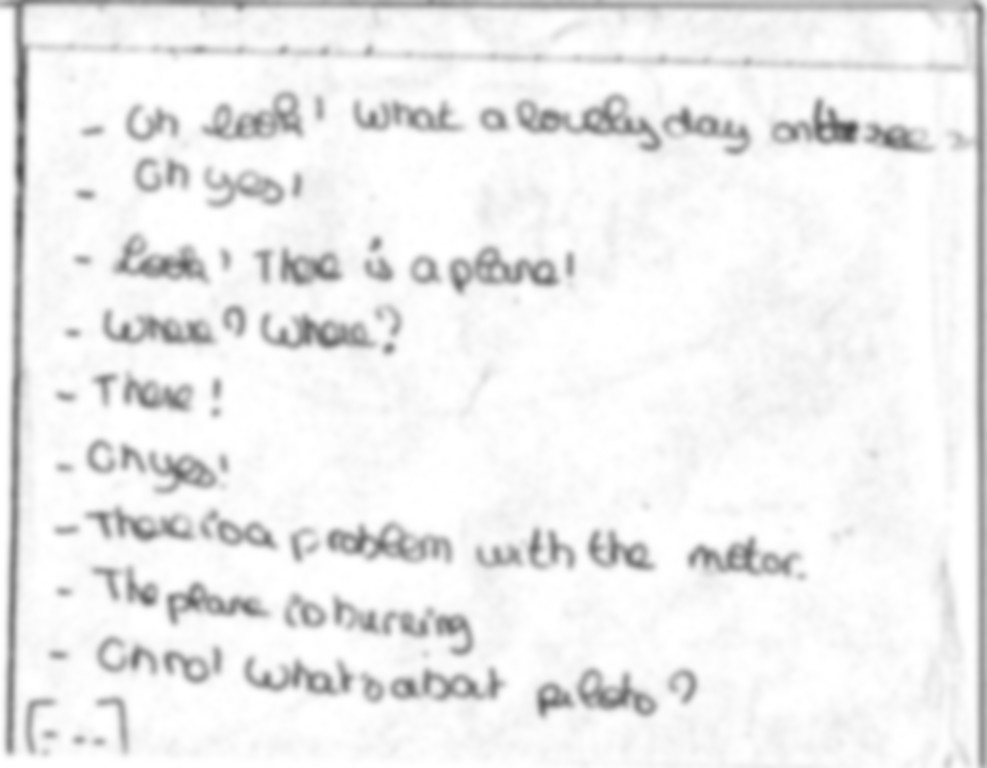 - Oh look! What a lovely day on the see
- Oh yes!
- Look! There is a plane!
- Where? Where?
- There!
- Oh yes!
- There is a problem with the motor.
- The plane is burning
- Oh no! What's about pilots?
[---]